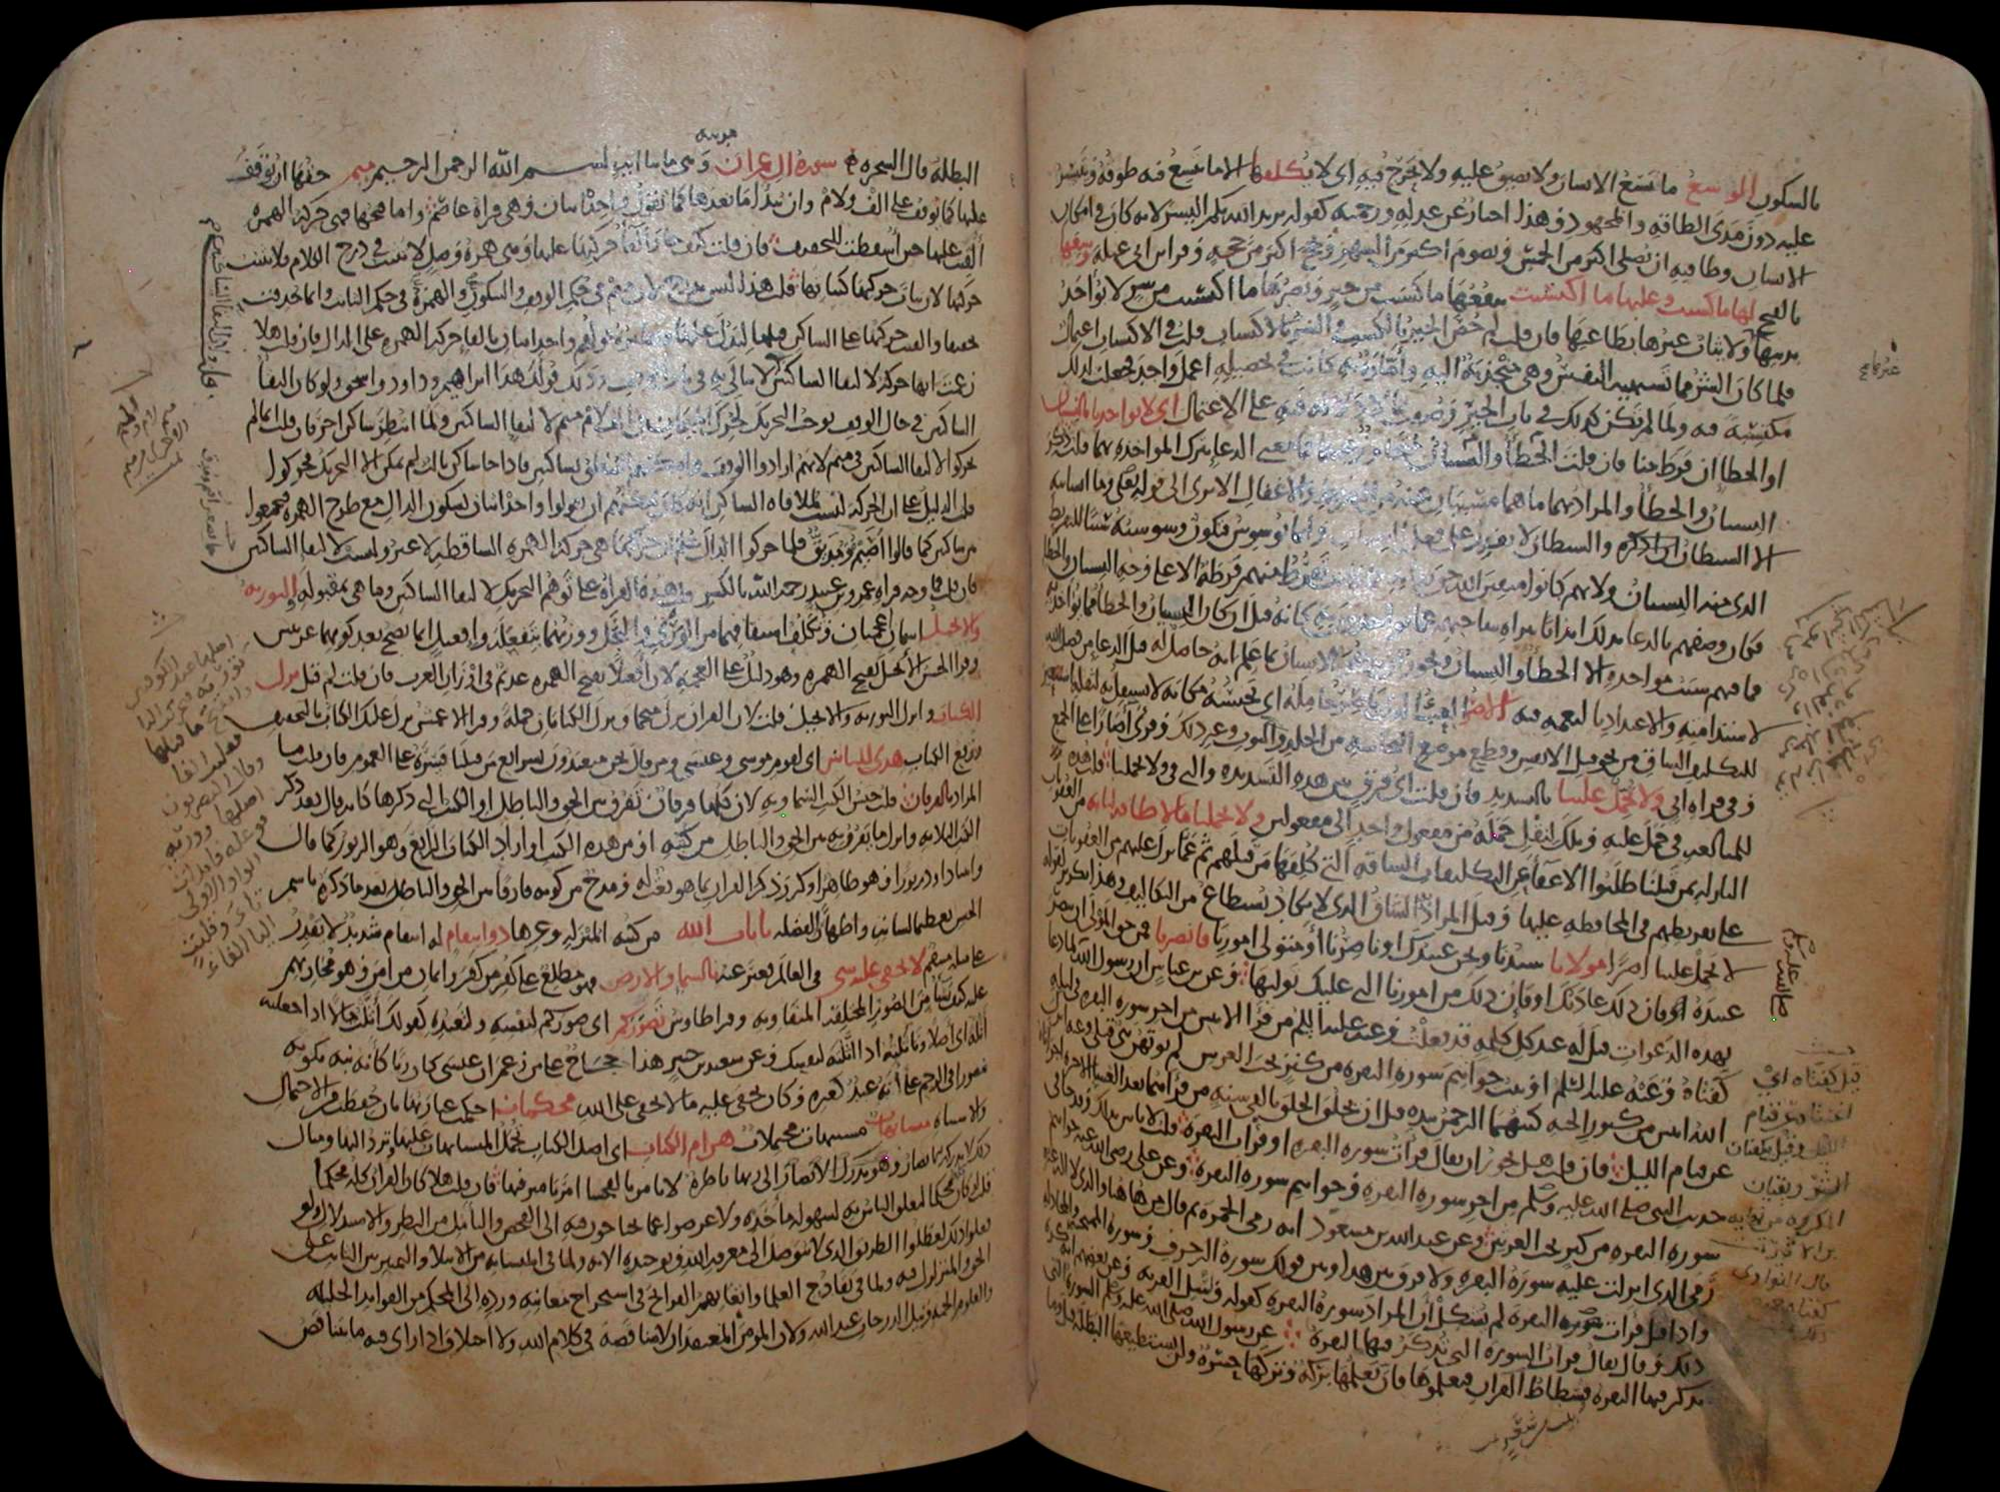 بالسكون الوسع ما تسع الانسان ولا يضيق عليه ولا يحرج فيه اي لا يكلفها الا ما يتسع فيه طوقه ويتيسر
عليه دون مدى الطاقة والمجهود وهذا اخبار عن عدله ورحمته كقوله يريد الله بكم اليسر لانه كان في امكان
الانسان وطاقته ان يصلي اكثر من الخمس ويصوم اكثر من الشهر ويحج اكثر من حجة وقرا ابن ابي عبلة وسعها
بالفتح لها ما كسبت وعليها ما اكتسبت ينفعها ما كسبت من خير ويضرها ما اكتسبت من شر لا يؤاخذ
بذنبها ولا يثاب غيرها بطاعتها فان قلت لم خص الخير بالكسب والشر بالاكتساب قلت في الاكتساب اعتمال
فلما كان الشر مما تشتهيه النفس وهي منجذبة اليه وامارة به كانت في تحصيله اعمل واجد فجعلت لذلك
مكتسبة فيه ولما لم تكن كذلك في باب الخير وصفت بما لا دلالة فيه على الاعتمال اي لا تواخذنا بالنسيان
او الخطا ان فرط منا فان قلت الخطأ والنسيان متجاوز عنهما فما معنى الدعا بترك المواخذة بهما قلت ذكر
النسيان والخطأ والمراد بهما ما هما مسببان عنه من التفريط والاغفال الا ترى الى قوله تعلى وما انسانيه
الا الشيطان ان اذكره والشيطان لا يقدر على فعل النسيان وانما يوسوس فتكون وسوسته سببا للتفريط
الذي منه النسيان ولانهم كانوا متقين الله حق تقاته فما كانت تفرط منهم فرطة الا على وجه النسيان والخطا
فكان وصفهم بالدعا بذلك ايذانا ببراة ساحتهم عما يواخذون به كانه قيل ان كان النسيان والخطأ مما يؤاخذ به
فما فيهم سبب مواخذة الا الخطأ والنسيان ويجوز ان يدعو الانسان بما علم انه حاصل له قبل الدعا من فضل الله
لاستدامته والاعتداد بالنعمة فيه الاصر العبء الذي ياصر حامله اي يحبسه مكانه لا يستقل به لثقله استعير
للتكليف الشاق من نحو قتل الانفس وقطع موضع النجاسة من الجلد والثوب وغير ذلك وقرئ آصارا على الجمع
وفي قراة ابي ولا تحمل علينا بالتشديد فان قلت اي فرق بين هذه التشديدة والتي في ولا تحملنا قلت هذه
للمبالغة في حمل عليه وتلك لنقل حمله من مفعول واحد الى مفعولين ولا تحملنا ما لا طاقة لنا به من العقوبات
النازلة بمن قبلنا طلبوا الاعفآ عن التكليفات الشاقة التي كلفها من قبلهم ثم عما نزل عليهم من العقوبات
على تفريطهم في المحافظة عليها وقيل المراد به الشاق الذي لا يكاد يستطاع من التكاليف وهذا تكرير لقوله
لا تحمل علينا اصرا مولانا سيدنا ونحن عبيدك او ناصرنا او متولي امورنا فانصرنا فمن حق المولى ان ينصر
عبيده او فان ذلك عادتك او فان ذلك من امورنا التي عليك توليها وعن ابن عباس ان رسول الله لما دعا
بهذه الدعوات قيل له عند كل كلمة قد فعلت وعنه عليه السلم من قرا الايتين من اخر سورة البقرة في ليلة
كفتاه وعنه عليه السلم اوتيت خواتيم سورة البقرة من كنز تحت العرش لم يؤتهن نبي قبلي وعنه انزل
الله ايتين من كنوز الجنة كتبهما الرحمن بيده قبل ان يخلق الخلق بالفي سنة من قراهما بعد العشا الاخرة اجزاتاه
عن قيام الليل فان قلت هل يجوز ان يقال قرات سورة البقرة او قرات البقرة قلت لا باس بذلك وقد جا في
حديث النبي صلى الله عليه وسلم من اخر سورة البقرة وخواتيم سورة البقرة وعن علي رضي الله عنه خواتيم
سورة البقرة من كنز تحت العرش وعن عبد الله بن مسعود انه رمى الجمرة ثم قال من هاهنا والذي لا اله غيره
رمى الذي انزلت عليه سورة البقرة ولا فرق بين هذا وبين قولك سورة الزخرف وسورة الممتحنة والمجادلة
واذا قيل قرات سورة البقرة لم يشكل ان المراد سورة البقرة كقوله وسئل القرية وعن بعضهم انه كره
ذلك وقال يقال قرات السورة التي تذكر فيها البقرة عن رسول الله صلى الله عليه وسلم السورة التي
تذكر فيها البقرة فسطاط القران فتعلموها فان تعلمها بركة وتركها حسرة ولن تستطيعها البطلة قيل وما
البطلة قال السحرة سورة ال عمران وهي مايتا اية بسم الله الرحمن الرحيم ميم حقها ان يوقف
مدنية
عليها كما يوقف على الف ولام وان يبدأ ما بعدها كما تقول واحد اثنان وهي قراة عاصم واما فتحها فهي حركة الهمزة
القيت عليها حين اسقطت للتخفيف فان قلت كيف جاز القا حركتها عليها وهي همزة وصل لا تثبت في درج الكلام فلا تثبت
حركتها لان ثبات حركتها كثباتها قلت هذا ليس بدرج لان ميم في حكم الوقف والسكون والهمزة في حكم الثابت وانما حذفت
تخفيفا والقيت حركتها على الساكن قبلها لتدل عليها ونظيره قولهم واحد اثنان بالقا حركة الهمزة على الدال فان قلت هلا
زعمت انها حركة لالتقا الساكنين قلت لان التقا الساكنين لا يبالى به في باب الوقف وذلك قولك هذا ابراهيم وداود واسحق ولو كان التقا
الساكنين في حال الوقف يوجب التحريك لحرك الميمان في الف لام ميم لالتقا الساكنين ولما انتظر ساكن اخر فان قلت انما لم
يحركوا لالتقا الساكنين في ميم لانهم ارادوا الوقف وامكنهم النطق بساكنين فاذا جا ساكن ثالث لم يمكن الا التحريك فحركوا
قلت الدليل على ان الحركة ليست لملاقاة الساكن انه كان يمكنهم ان يقولوا واحد اثنان بسكون الدال مع طرح الهمزة فيجمعوا
بين ساكنين كما قالوا اصيم ومديق فلما حركوا الدال علم ان حركتها هي حركة الهمزة الساقطة لا غير وليست لالتقا الساكنين
فان قلت فما وجه قراة عمرو بن عبيد رحمه الله بالكسر قلت هذه القراة على توهم التحريك لالتقا الساكنين وما هي بمقبولة والتورية
والانجيل اسمان اعجميان وتكلف اشتقاقهما من الوري والنجل ووزنهما بتفعلة وافعيل انما يصح بعد كونهما عربيين
وقرا الحسن الانجيل بفتح الهمزة وهو دليل على العجمة لان افعيلا بفتح الهمزة عديم في اوزان العرب فان قلت لم قيل نزل
الكتاب وانزل التورية والانجيل قلت لان القران نزل منجما ونزل الكتابان جملة وقرا الاعمش نزل عليك الكتاب بالتخفيف
ورفع الكتاب هدى للناس اي لقوم موسى وعيسى ومن قال نحن متعبدون بشرائع من قبلنا فسره على العموم فان قلت ما
المراد بالفرقان قلت جنس الكتب السماوية لان كلها فرقان تفرق بين الحق والباطل او الكتب التي ذكرها كانه قال بعد ذكر
الكتب الثلاثة وانزل ما يفرق به بين الحق والباطل من كتبه او من هذه الكتب او اراد الكتاب الرابع وهو الزبور كما قال
واتينا داود زبورا وهو ظاهر او كرر ذكر القران بما هو نعت له ومدح من كونه فارقا بين الحق والباطل بعد ما ذكره باسم
الجنس تعظيما لشانه واظهارا لفضله بايات الله من كتبه المنزلة وغيرها ذو انتقام له انتقام شديد لا يقدر
على مثله منتقم لا يخفى عليه شي في العالم فعبر عنه بالسما والارض فهو مطلع على كفر من كفر وايمان من امن وهو مجازيهم
عليه كيف يشا من الصور المختلفة المتفاوتة وقرا طاوس تصوركم اي صوركم لنفسه ولتعبده كقولك اثلت مالا اذا جعلته
اثلة اي اصلا وتاثلته اذا اثلته لنفسك وعن سعيد بن جبير هذا حجاج على من زعم ان عيسى كان ربا كانه نبه بكونه
مصورا في الرحم على انه عبد كغيره وكان يخفى عليه ما لا يخفى على الله محكمات احكمت عبارتها بان حفظت من الاحتمال
والاشتباه متشابهات مشتبهات محتملات هن ام الكتاب اي اصل الكتاب تحمل المتشابهات عليها وترد اليها ومثال
ذلك لا تدركه الابصار وهو يدرك الابصار الى ربها ناظرة لا يامر بالفحشا امرنا مترفيها فان قلت هلا كان القران كله محكما
قلت لو كان كله محكما لتعلق الناس به لسهولة ماخذه ولاعرضوا عما يحتاجون فيه الى الفحص والتامل من النظر والاستدلال ولو
فعلوا ذلك لعطلوا الطريق الذي لا يتوصل الى معرفة الله وتوحيده الا به ولما في المتشابه من الابتلاء والتمييز بين الثابت على
الحق والمتزلزل فيه ولما في تقادح العلما واتعابهم القرائح في استخراج معانيه ورده الى المحكم من الفوايد الجليلة
والعلوم الجمة ونيل الدرجات عند الله ولان المومن المعتقد ان لا مناقضة في كلام الله ولا اختلاف اذا راى فيه ما يتناقض